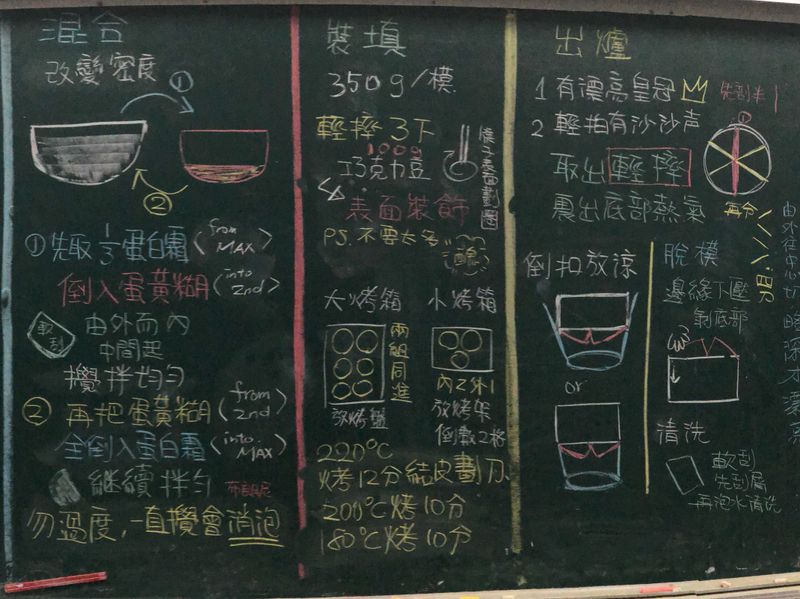 混合
改變密度
①
②
①先取⅓蛋白霜
from MAX
倒入蛋黃糊
into 2nd
軟刮
由外而內
中間起
攪拌均勻
②再把蛋黃糊
from 2nd
全倒入蛋白霜
into MAX
繼續拌勻
勿過度，一直攪會消泡
裝填
350g/模
輕摔3下
100g
巧克力豆
模子表面劃圈
表面裝飾
PS. 不要太多
大烤箱
小烤箱
兩組同進
放烤盤
內2外1
放烤架
倒數2格
220℃
烤12分結皮劃刀
200℃烤10分
180℃烤10分
出爐
1 有漂高皇冠
2 輕拍有沙沙声
取出輕摔
裏出底部熱氣
①
再分
四分
由外往中心切
倒扣放涼
or
脫模
邊緣下壓
剝底部
清洗
軟刮
先刮屑
再泡水清洗